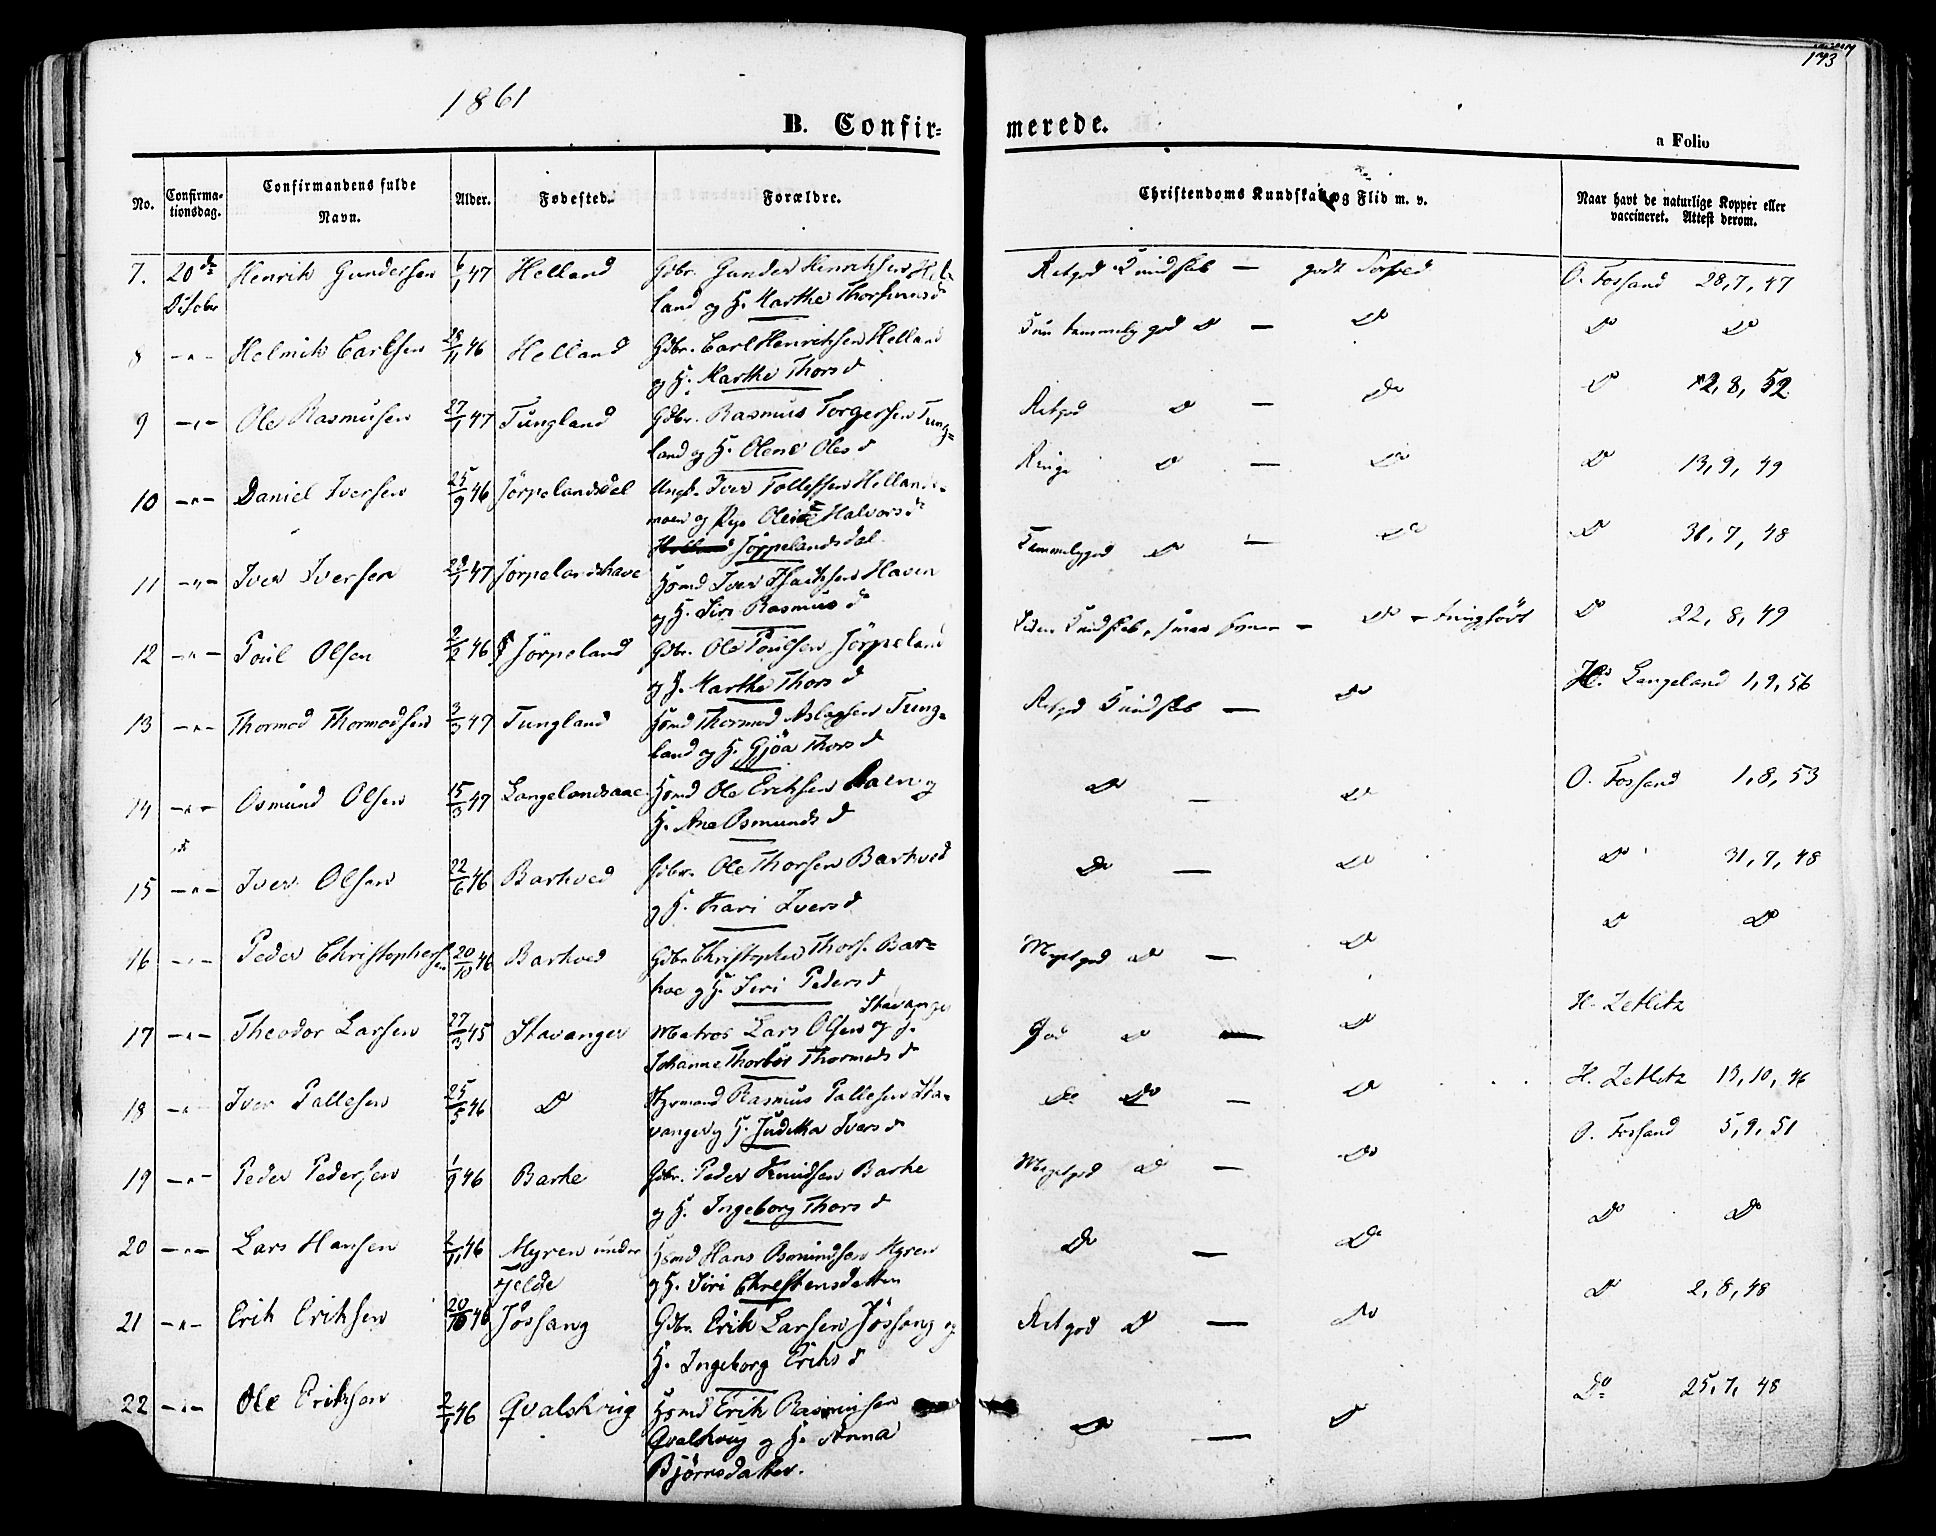 1861
143
B. Confir= merede.
a Folio
No. Confirma-tionsdag. Confirmandens fulde Navn. Alder. Fødested. Forældre. Christendoms Kundskab og Flid m. v. Naar havt de naturlige Kopper eller vaccineret. Attest derom.
7. 20de October Henrik Gundersen 6/1 47 Helland Gdbr. Gunder Henriksen Hel- Retgod Kundskab — godt Forhold O. Fossand 28,7,47
land og H. Marthe Thorsens d
8 -"- Helmik Carlsen 28/11 46 Helland Gdbr. Carl Henriksen Helland Kun temmelig god Do — Do Do Do
og H. Marthe Thors d
9 -"- Ole Rasmusen 27/1 47 Tungland Gdbr. Rasmus Torgersen Tung= Retgod Do — Do Do 12,8,52
land og H. Olene Oles d
10 -"- Daniel Iversen 25/9 46 Jörpelandsdal Ungk. Iver Tollefsen Hellands- Ringe Do — Do Do 13,9,49
moen og Pige Oline Halvors d
Helland Jörpelandsdal.
11 -"- Iver Iversen 29/1 47 Jörpelandshave Hsmd Iver Haven Temmeliggod Do — Do Do 31,7,48
og H. Siri Rasmus d
12 -"- Poul Olsen 2/2 46 Jörpeland Gdbr. Ole Poulsen Jörpeland Liden Kundskab, — Do — Do 22,8,49
og H. Marthe Thors d
13 -"- Thormod Thormodsen 3/3 47 Tungland Hsmd Thormod Aslagsen Tung= Retgod Kundskab — Do H. Langeland 1,9,56
land og H. Gjöa Thors d
14 -"- Osmund Olsen 15/3 47 Langelandsaae Hsmd Ole Eriksen Aaen og Do — Do O. Fossand 1,8,53
H. Ane Osmunds d
15 -"- Iver Olsen 22/6 46 Barkved Gdbr. Ole Thorsen Barkved Do — Do Do 31,7,48
og H. Kari Ivers d
16 -"- Peder Christophersen 20/10 46 Barkved Gdbr Christopher Thors. Bar= Megetgod Do — Do Do Do
kve og H. Siri Peders d
17 -"- Theodor Larsen 27/3 45 Stavanger Matros Lars Olsen Stavanger og H. God Do — Do H. Zetlitz
Johanne Thorbör Thormods d
18 -"- Iver Pallesen 25/5 46 Do Styrmand Rasmus Pallesen Sta- Do Do — Do H. Zetlitz 13,10,46
vanger og H. Juditha Ivers d
19 -"- Peder Pedersen 1/9 46 Barke Gdbr. Peder Knudsen Barke Megetgod Do — Do O. Fossand 5,9,51
og H. Ingeborg Thors d
20 -"- Lars Hansen 2/11 46 Myren under Hsmd Hans Osmundsen Myren Do — Do Do Do
Fjelde og H. Siri Christensdatter
21 -"- Erik Eriksen 20/10 46 Jössang Gdbr. Erik Larsen Jössang og Retgod Do — Do Do 2,8,48
H. Ingeborg Eriks d
22 -"- Ole Eriksen 2/1 46 Qvalskrug Hsmd Erik Rasmusen Do — Do Do 25,7,48
Qvalskrug og H. Anna
Björnsdatter.